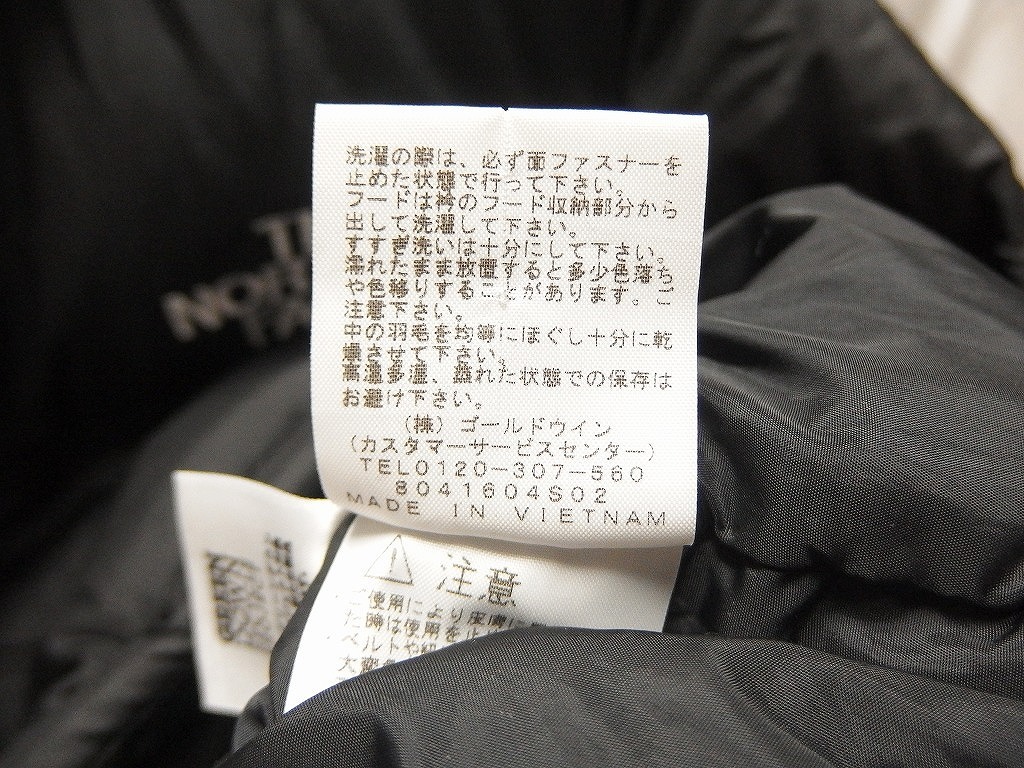 洗濯の際は、必ず面ファスナーを
止めた状態で行って下さい。
フードは衿のフード収納部分から
出して洗濯して下さい。
すすぎ洗いは十分にして下さい。
濡れたまま放置すると多少色落ち
や色移りすることがあります。ご
注意下さい。
中の羽毛を均等にほぐし十分に乾
燥させて下さい。
高温多湿、蒸れた状態での保存は
お避け下さい。
(株)ゴールドウイン
(カスタマーサービスセンター)
TEL0120-307-560
8041604S02
MADE IN VIETNAM
注意
ご使用により皮膚に
た時は使用を止
ベルトや紐
大変